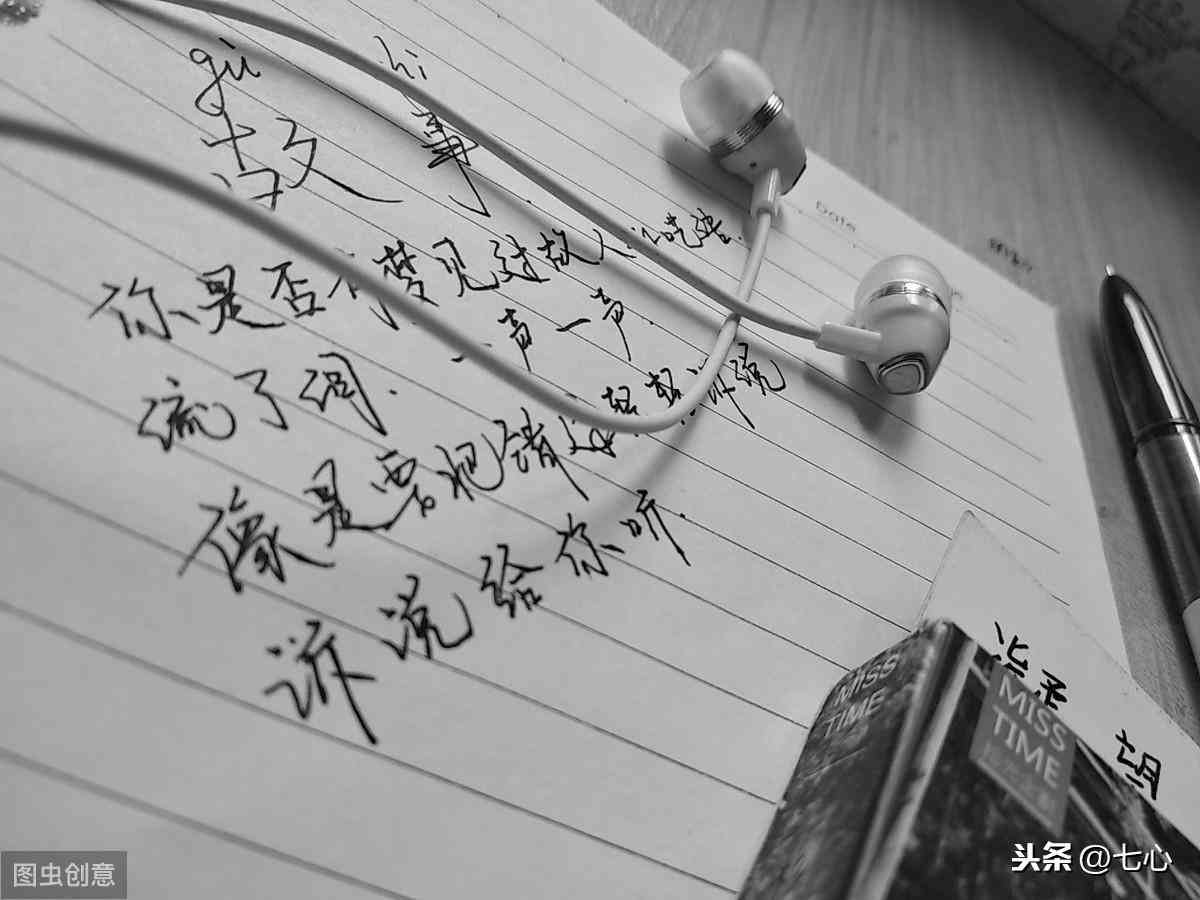 gù shi
故事
你是否有梦见过故人
流了调. 一声一声.
像是要把错过轻轻诉说
诉说给你听.
Date
MISS TIME
MISS TIME
图虫创意
头条 @七心